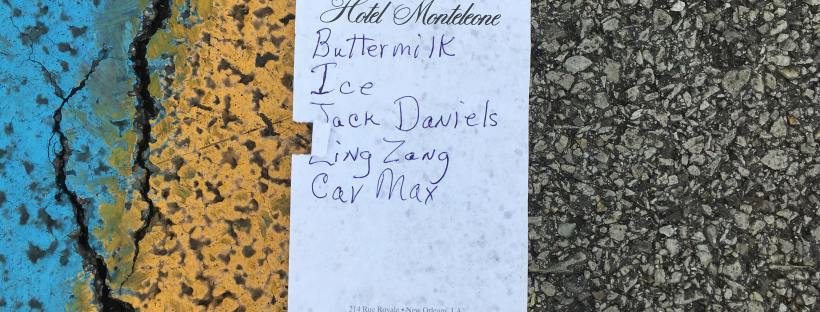 Hotel Monteleone
Buttermilk
Ice
Jack Daniels
Zang
Car Max
214 Rue Royale • New Orleans, LA